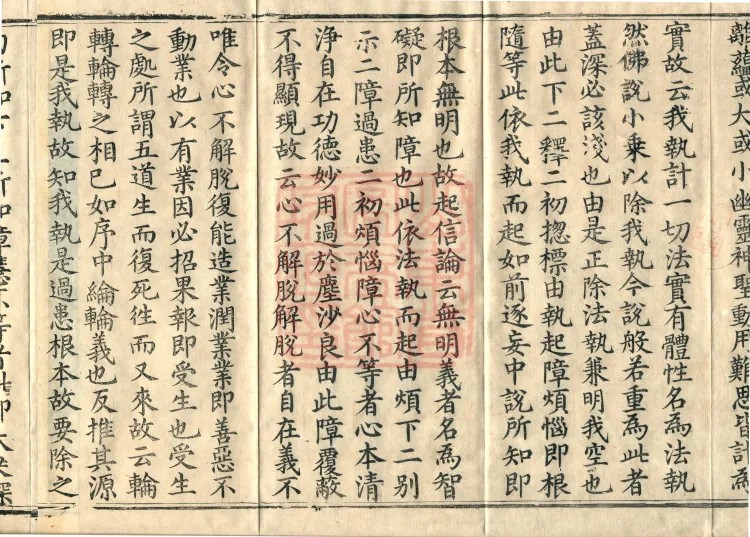 離蘊或大或小幽靈神聖動用難思皆計為
實故云我執計一切法實有體性名為法執
然佛說小乘以除我執今說般若重為此者
蓋深必該淺也由是正除法執兼明我空也
由此下二釋二初揔標由執起障煩惱即根
隨等此依我執而起如前逐妄中說所知即
根本無明也故起信論云無明義者名為智
礙即所知障也此依法執而起由煩下二別
示二障過患二初煩惱障心不等者心本清
淨自在功德妙用過於塵沙良由此障覆蔽
不得顯現故云心不解脫解脫者自在義不
唯令心不解脫復能造業潤業業即善惡不
動業也以有業因必招果報即受生也受生
之處所謂五道生而復死徃而又來故云輪
轉輪轉之相已如序中綸輪義也反推其源
即是我執故知我執是過患根本故要除之